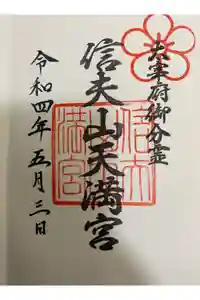 太宰府御分霊
信夫山天満宮
令和四年五月三日
信夫山天満宮